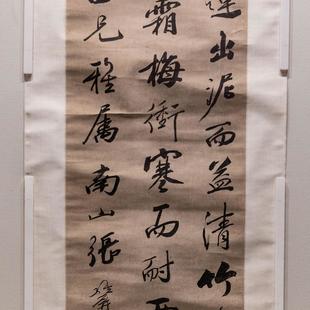 蓮出泥而益清竹
霜梅衝寒而耐
兄雅属南山張